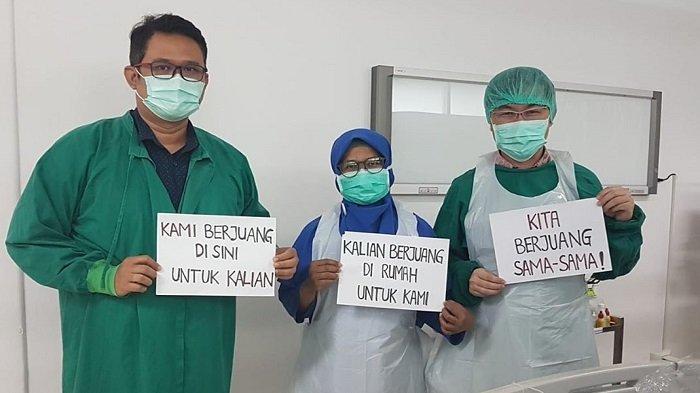 KAMI BERJUANG
DI SINI
UNTUK KALIAN
KALIAN BERJUANG
DI RUMAH
UNTUK KAMI
KITA
BERJUANG
SAMA-SAMA!